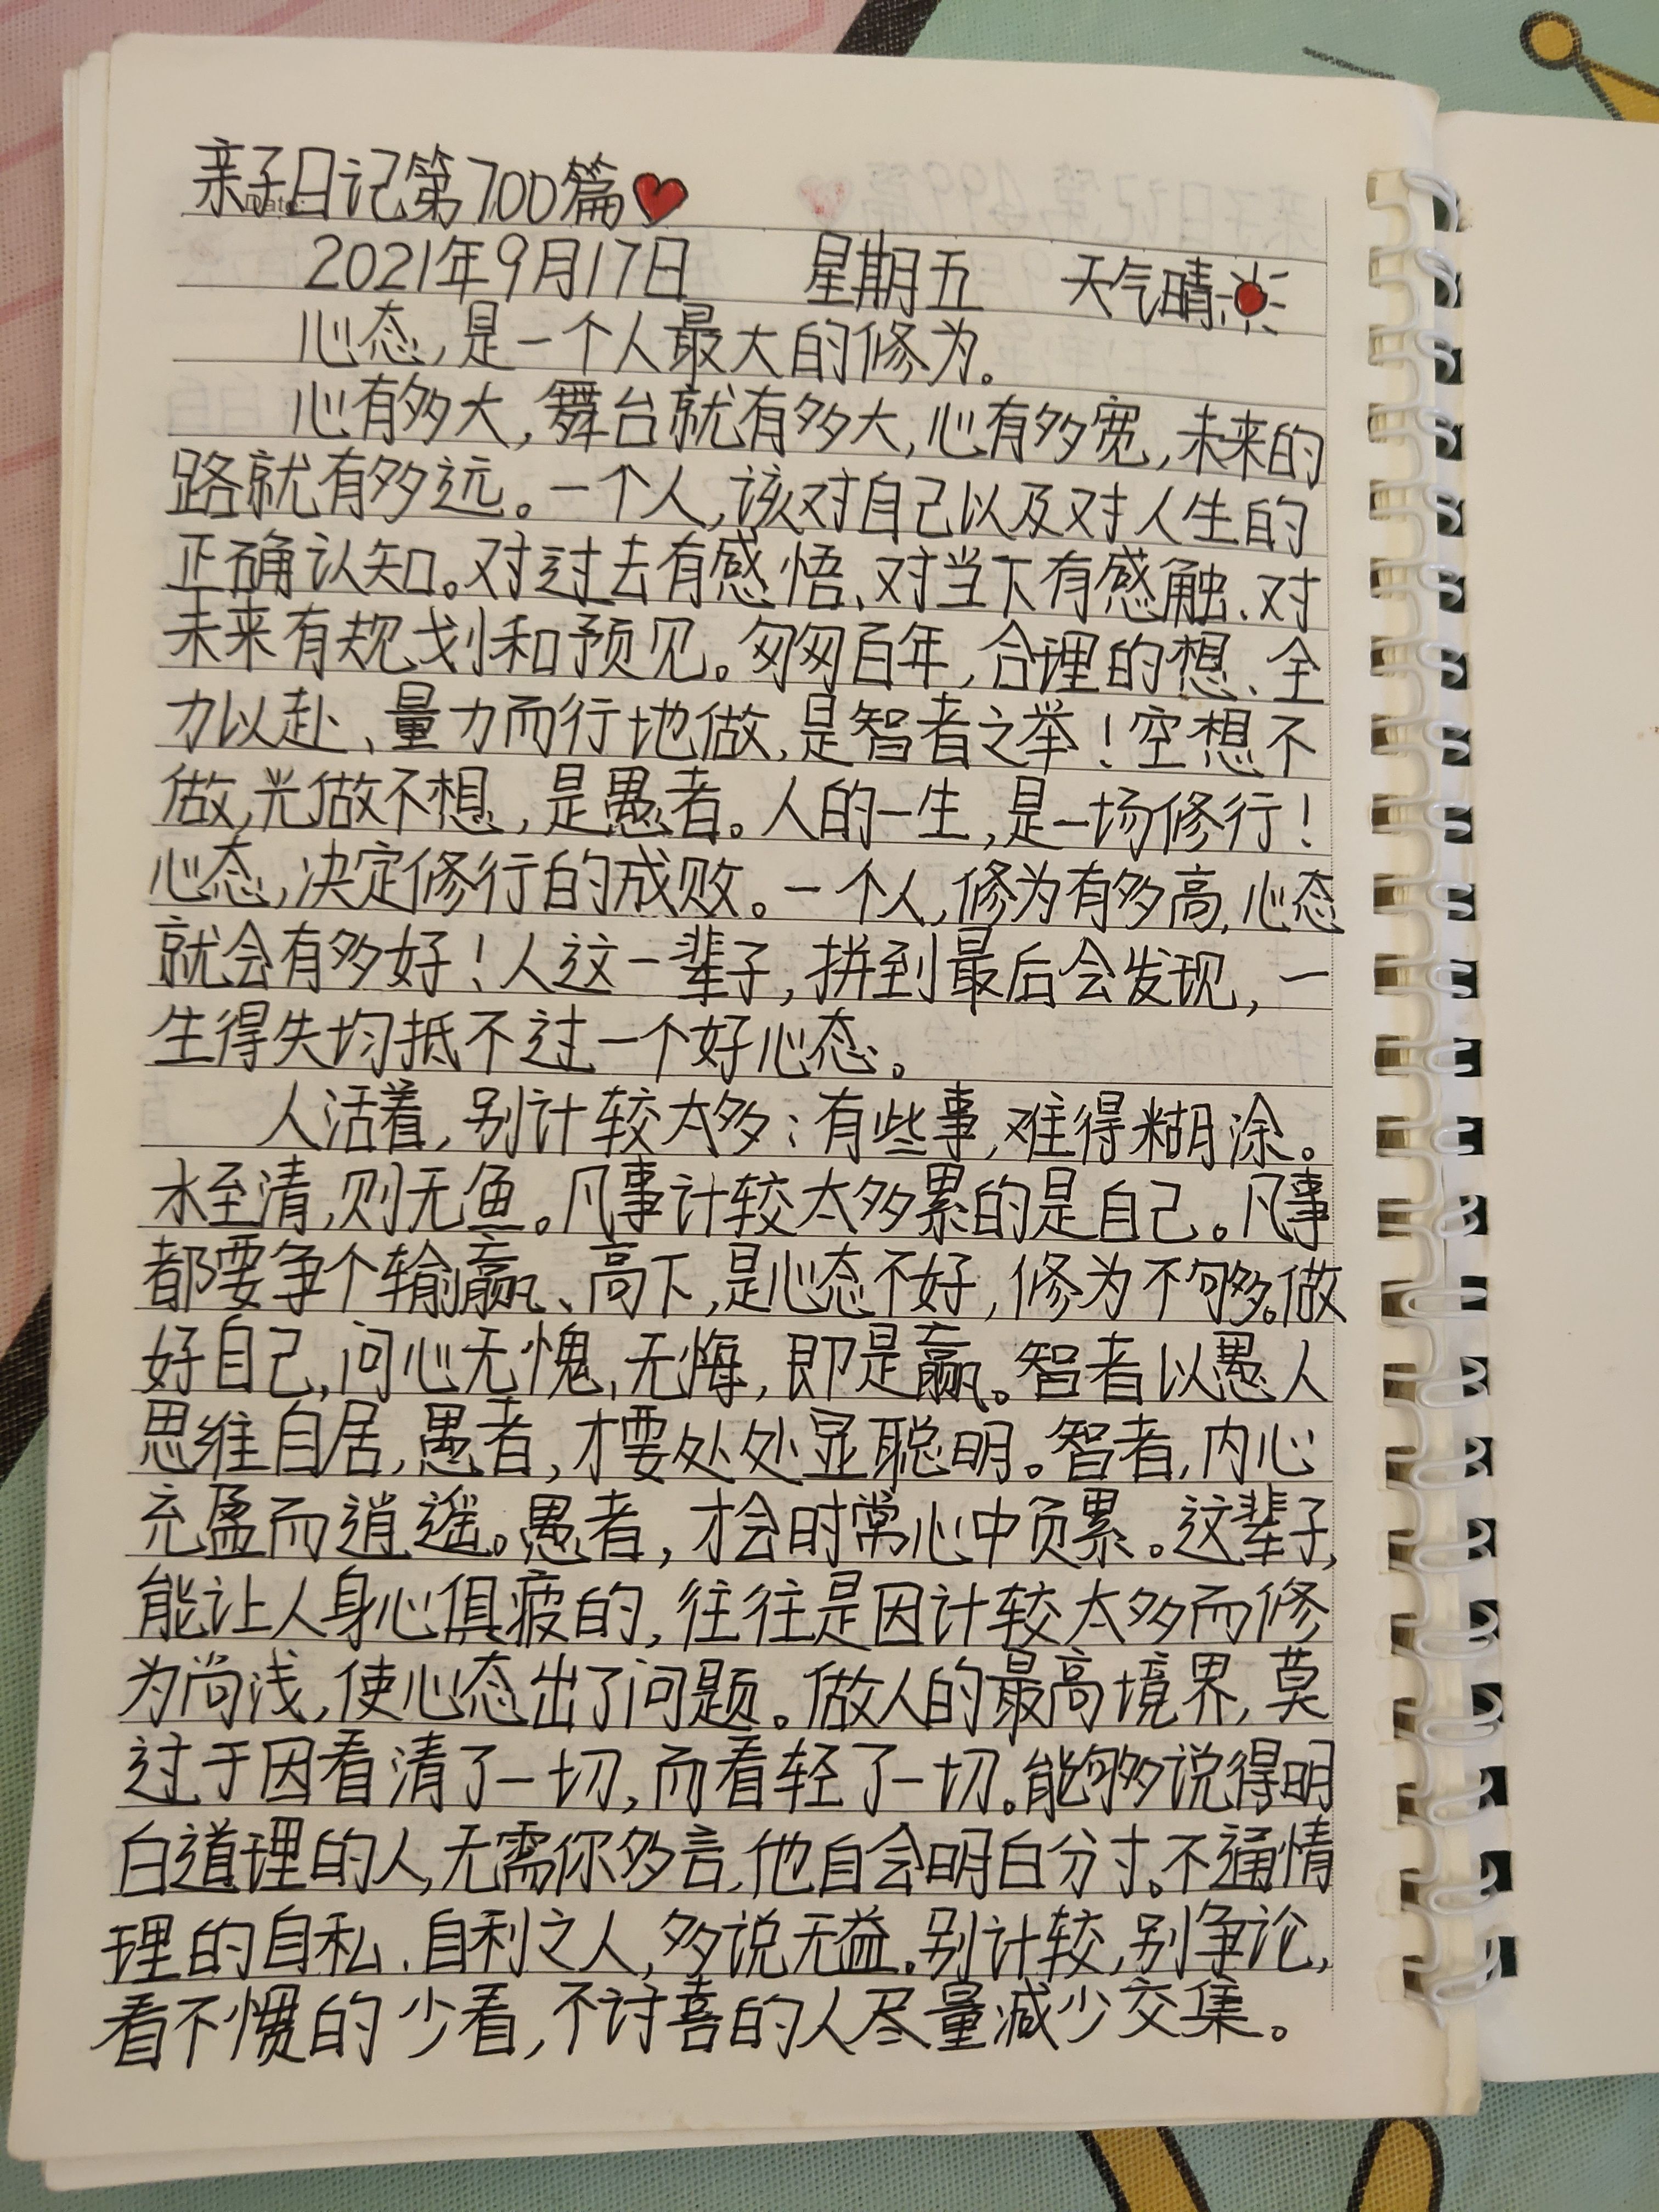 亲子日记第700篇
2021年9月17日 星期五 天气晴
心态,是一个人最大的修为。
心有多大,舞台就有多大,心有多宽,未来的
路就有多远。一个人,该对自己以及对人生的
正确认知。对过去有感悟、对当下有感触、对
未来有规划和预见。匆匆百年,合理的想、全
力以赴、量力而行地做,是智者之举!空想不
做,光做不想,是愚者。人的一生,是一场修行!
心态,决定修行的成败。一个人,修为有多高,心态
就会有多好!人这一辈子,拼到最后会发现,一
生得失均抵不过一个好心态。
人活着,别计较太多;有些事,难得糊涂。
水至清,则无鱼。凡事计较太多累的是自己。凡事
都要争个输赢、高下,是心态不好,修为不够。做
好自己,问心无愧,无悔,即是赢。智者以愚人
思维自居,愚者,才要处处显聪明。智者,内心
充盈而逍遥。愚者,才会时常心中负累。这辈子,
能让人身心俱疲的,往往是因计较太多而修
为尚浅,使心态出了问题。做人的最高境界,莫
过于因看清了一切,而看轻了一切。能够说得明
白道理的人,无需你多言,他自会明白分寸。不通情
理的自私、自利之人,多说无益。别计较,别争论,
看不惯的少看,不讨喜的人尽量减少交集。